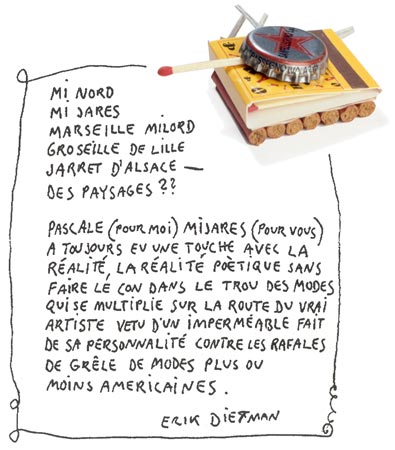 MI NORD
MI JARES
MARSEILLE MILORD
GROSEILLE DE LILLE
JARRET D'ALSACE —
DES PAYSAGES ??
PASCALE (POUR MOI) MIJARES (POUR VOUS)
A TOUJOURS EU UNE TOUCHE AVEC LA
RÉALITÉ, LA RÉALITÉ POÈTIQUE SANS
FAIRE LE CON DANS LE TROU DES MODES
QUI SE MULTIPLIE SUR LA ROUTE DU VRAI
ARTISTE VETU D'UN IMPERMÉABLE FAIT
DE SA PERSONNALITÉ CONTRE LES RAFALES
DE GRÊLE DE MODES PLUS OU
MOINS AMERICAINES.
ERIK DIETMAN